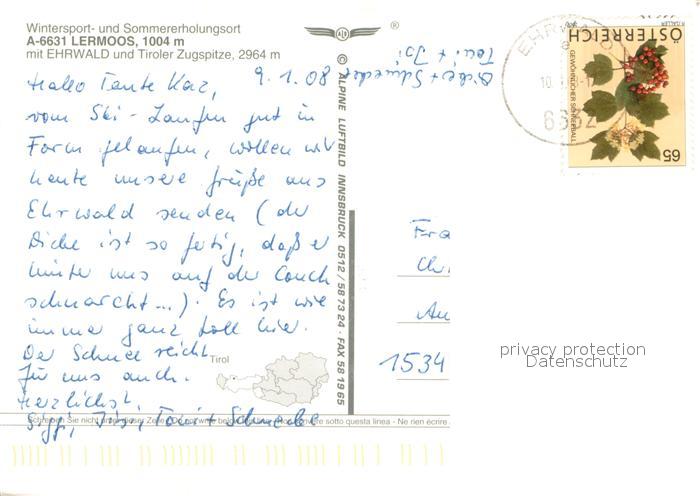 Wintersport- und Sommererholungsort
A-6631 LERMOOS, 1004 m
mit EHRWALD und Tiroler Zugspitze, 2964 m
ALB
®
Hallo Tante Kar, 9.1.08
vom Ski-Laufen gut in
Form gelaufen, wollen wir
heute unsere Grüße aus
Ehrwald senden (der
Dicke ist so fertig, daß er
hinter uns auf der Couch
schnarcht...). Es ist wie
immer ganz toll hier.
Der Schnee reicht
für uns auch.
Herzlichst,
Siggi, Toni + Schnecke
Tirol
Schreiben Sie nicht unter dieser Zeile / Do not write below this line / Non scrivere sotto questa linea - Ne rien écrire
© ALPINE LUFTBILD INNSBRUCK 0512/58 73 24 · FAX 58 19 65
Dicker + Schnecke
Toni +
EHRW
10.
ÖSTERREICH
GEWÖHNLICHER SCHNEEBALL
65
Fra
Ch
Au
1534
privacy protection
Datenschutz